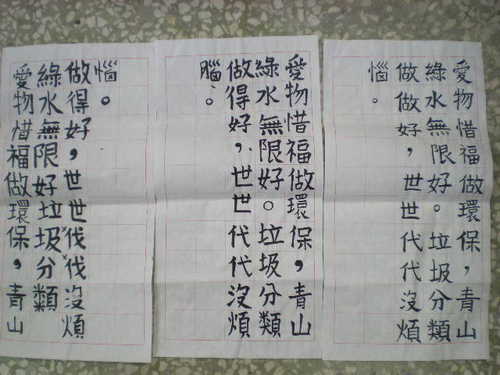 愛物惜福做環保，青山
綠水無限好。垃圾分類
做做好，世世代代沒煩
惱。
愛物惜福做環保，青山
綠水無限好。垃圾分類
做得好，世世代代沒煩
腦。
愛物惜福做環保，青山
綠水無限好垃圾分類
做得好，世世伐伐沒煩
惱。